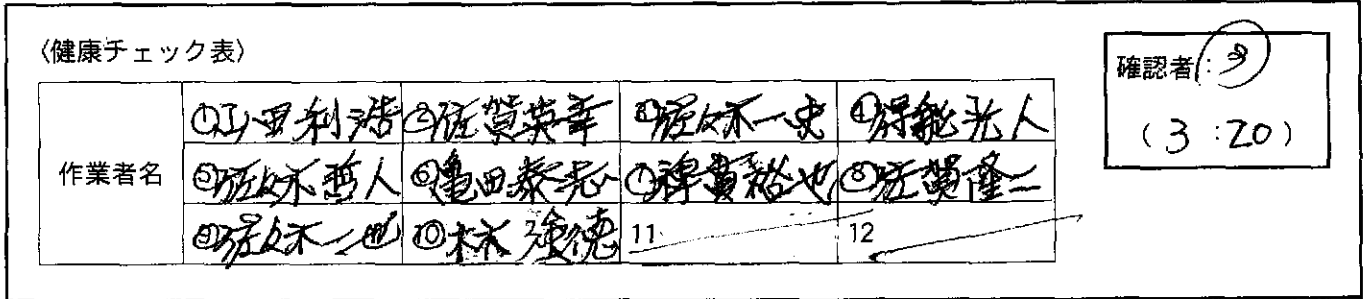 〈健康チェック表〉
確認者:
(3:20)
作業者名
①山田利浩 ②佐賀英幸 ③佐々木一史 ④得能光人
⑤佐々木哲人 ⑥亀田泰志 ⑦神貴裕也 ⑧佐賀隆二
⑨佐々木一也 ⑩林 強徳 11 12